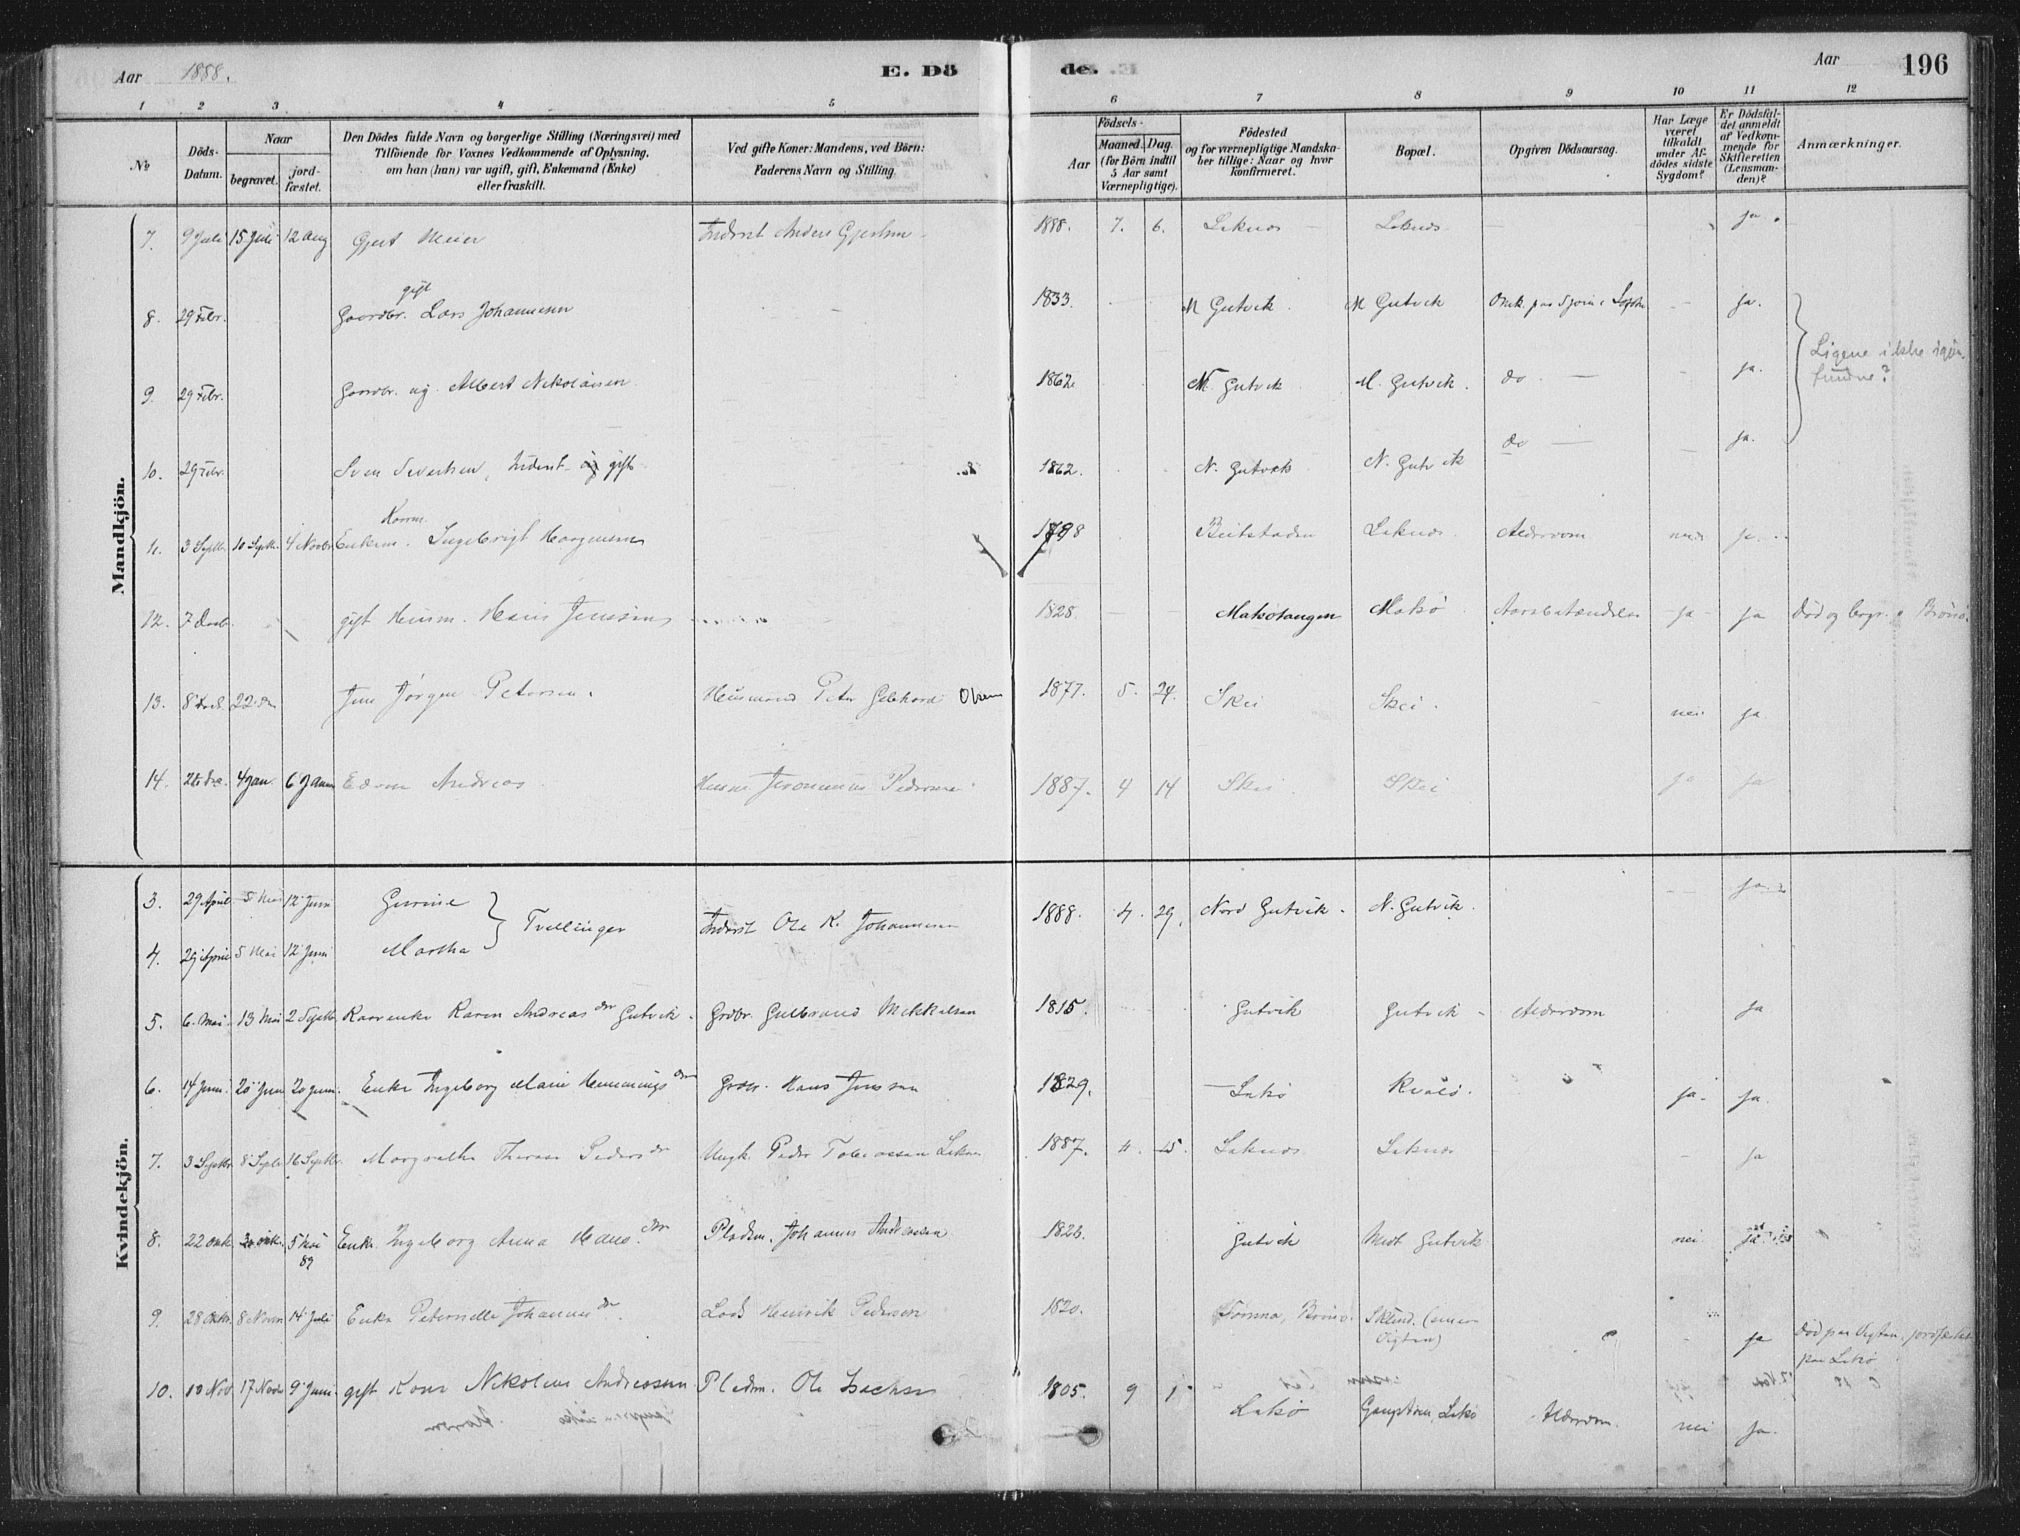 Aar 1888. E. Dö de. Aar 196
1 2 3 4 5 6 7 8 9 10 11 12
№
Döds-Datum.
Naar
begravet.
jord-fæstet.
Den Dödes fulde Navn og borgerlige Stilling (Næringsvei) med
Tilföiende for Voxnes Vedkommende af Oplysning,
om han (hun) var ugift, gift, Enkemand (Enke)
eller fraskilt.
Ved gifte Koner: Mandens, ved Börn:
Faderens Navn og Stilling.
Födsels-
Aar
Maaned. Dag.
(for Börn indtil
5 Aar samt
Værnepligtige).
Födested
og for værnepligtige Mandska-
ber tillige: Naar og hvor
konfirmeret.
Bopæl.
Opgiven Dödsaarsag.
Har Læge
været
tilkaldt
under Af-
dödes sidste
Sygdom?
Er Dödsfal-
det anmeldt
af Vedkom-
mende for
Skifteretten
(Lensman-
den)?
Anmærkninger.
Mandkjön.
7. 9 Juli 15 Juli 12 Aug Gjert Meier Inderst Anders 1888. 7. 6. Leknes Leknes ja.
8. 29 Febr. Gaardbr. gift Lars Johannesen 1833. M Gutvik. M Gutvik Omk. paa Sjøen ja.
9. 29 Febr. Gaardbr. ug. Albert Nikolaisen 1862 M. Gutvik M. Gutvik. do. ja.
Ligene ikke igjen-
fundne?
10. 29 Febr. Sven Sivertsen, Inderst gift 1862. N. Gutvik N. Gutvik do ja.
11. 3 Septbr. 10 Septbr. 4 Novbr Enkem. Ingebrigt 1798 Beitstaden Leknes Alderdom nei ja.
12. 7 Decb. gift Husm. Hans Jenssen 1828. Madsøtangen Madsø ja ja Død og begr. i Brønø.
13. 8 Decb. 22 Jens Jørgen Petersen. Husmand Peter Gebhard Olsen 1877. 5. 24. Skei Skei. nei ja
14. 4 Jan. 6 Edvin Andreas Husm Jeronimus Pedersen 1887. 4 14 Skei Skei ja ja
Kvindekjön.
3. 29 April 5 Mai 12 Juni Gurine
Tvillinger Inderst Ole K. Johannesen 1888. 4. 29. Nord Gutvik. N. Gutvik. ja
4. 29 April 5 Mai 12 Juni Martha
5. 6. Mai. 13 Mai 2 Septbr. Kaarenke Karen Andreasdr Gutvik. Grdbr. Gulbrand Mikkelsen 1815. Gutvik Gutvik Alderdom ja
6. 14 Juni. 20 Juni 20 Juni. Enke Ingeborg Marie Hemmingsdr Grdbr. Hans Jenssen 1829. Lekø Kvalø. ja. ja.
7. 3 Septbr. 8 Septbr 16 Septbr. Margrethe Therese Pedersdr Ungk. Peder Tobiassen Leknes 1887. 11. 15. Leknes Leknes ja
8. 22 Okt. 30 Okt. 5 Mai 89 Enke. Ingeborg Anna Hansdtr Pladsm. Johannes Andersen 182 Gutvik Midt Gutvik nei ja
9. 28 Oktbr. 8 Novbr 14 Juli Enke Peternelle Johannesdr. Lods Henrik Pedersen 1820. Brønø. ja Død paa Vigten, jordfæstet
paa Lekø
10. 10 Nov 17 Novbr 9 Juni gift Kone Nikoline Andreassen Pladsm. Ole Isachsen 1805. 9 1 Lekø Lekø Alderdom. nei ja.